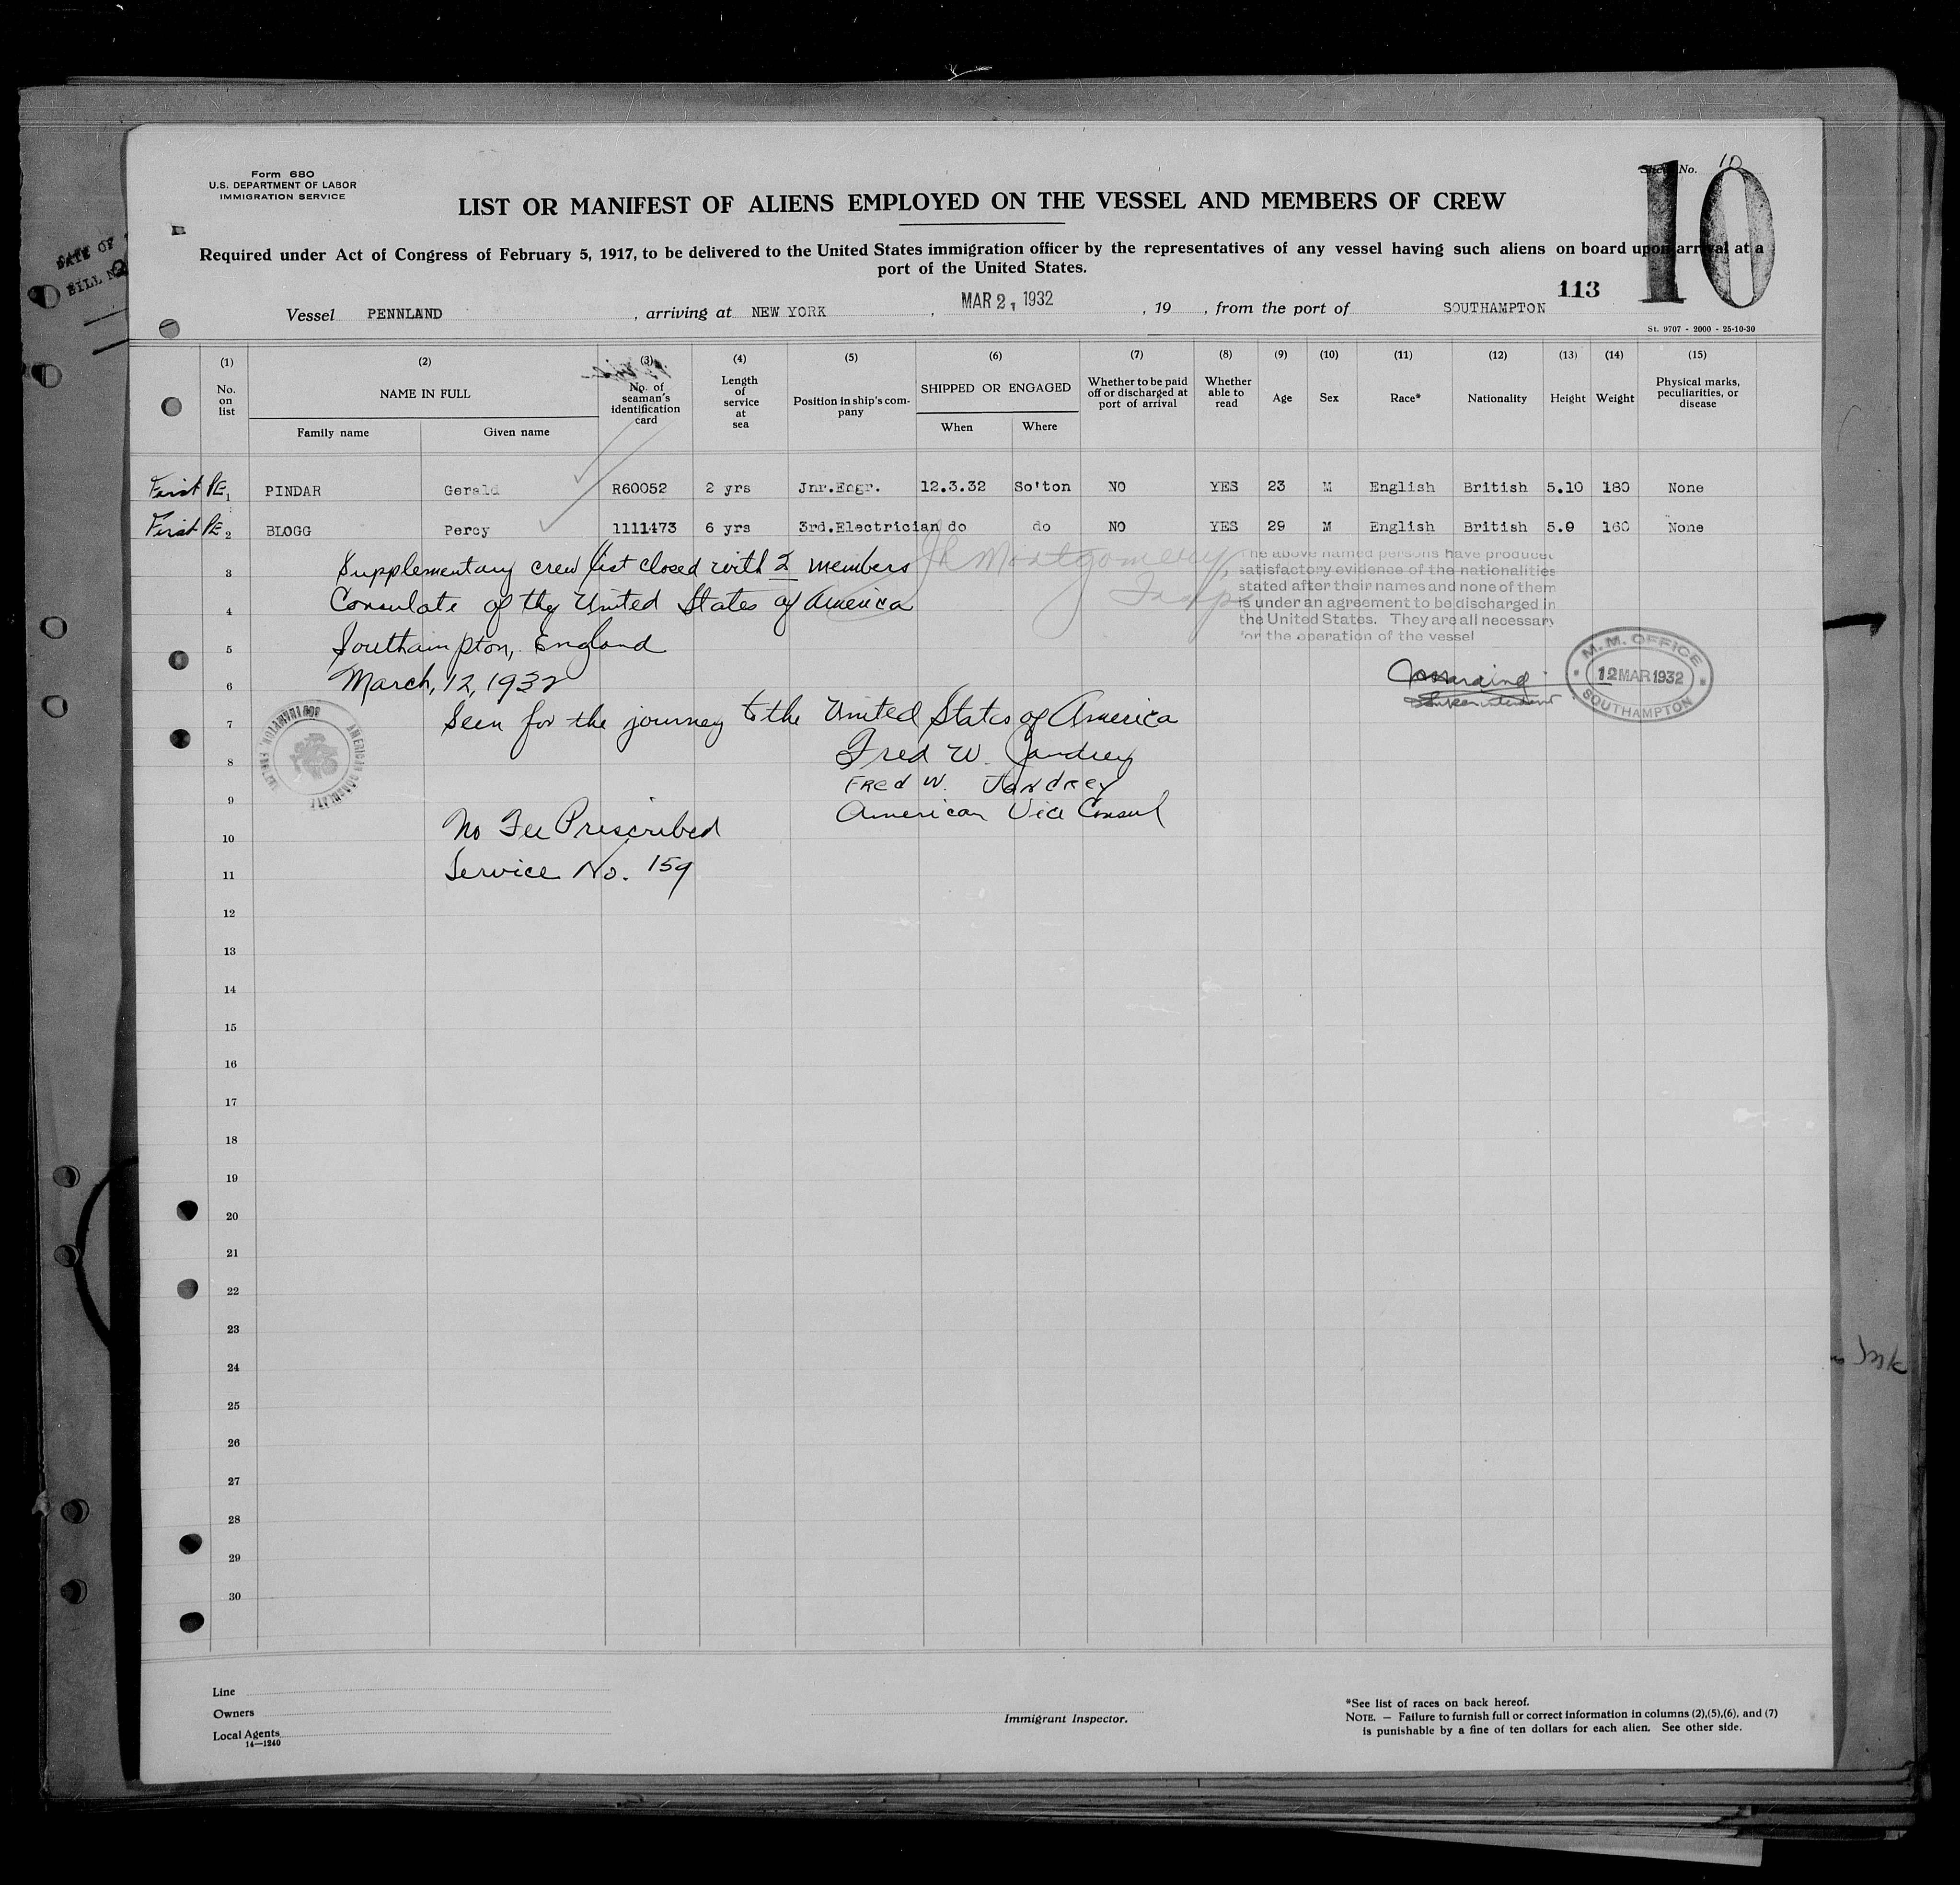 Form 680
U.S. DEPARTMENT OF LABOR
IMMIGRATION SERVICE
Sheet No. 10
10
LIST OR MANIFEST OF ALIENS EMPLOYED ON THE VESSEL AND MEMBERS OF CREW
Required under Act of Congress of February 5, 1917, to be delivered to the United States immigration officer by the representatives of any vessel having such aliens on board upon arrival at a
port of the United States.
113
Vessel PENNLAND, arriving at NEW YORK, MAR 2, 1932, 19, from the port of SOUTHAMPTON
St. 9707 - 2000 - 25-10-30
(1) (2) (3) (4) (5) (6) (7) (8) (9) (10) (11) (12) (13) (14) (15)
No. on list
NAME IN FULL
Family name Given name
No. of seaman's identification card
Length of service at sea
Position in ship's company
SHIPPED OR ENGAGED
When Where
Whether to be paid off or discharged at port of arrival
Whether able to read
Age
Sex
Race*
Nationality
Height
Weight
Physical marks, peculiarities, or disease
First PE 1 PINDAR Gerald R60052 2 yrs Jnr.Engr. 12.3.32 So'ton NO YES 23 M English British 5.10 180 None
First PE 2 BLOGG Percy 1111473 6 yrs 3rd.Electrician do do NO YES 29 M English British 5.9 160 None
Supplementary crew list closed with 2 members
Consulate of the United States of America
Southampton, England
March, 12, 1932
Seen for the journey to the United States of America
Fred W. Jandrey
FRed W. JANdREY
American Vice Consul
No Fee Prescribed
Service No. 159
JR Montgomery,
Insp
The above named persons have produced
satisfactory evidence of the nationalities
stated after their names and none of them
is under an agreement to be discharged in
the United States. They are all necessary
for the operation of the vessel
Superintendent
M. M. OFFICE
12 MAR 1932
SOUTHAMPTON
AMERICAN CONSULATE
SOUTHAMPTON, ENGLAND
3
4
5
6
7
8
9
10
11
12
13
14
15
16
17
18
19
20
21
22
23
24
25
26
27
28
29
30
Line
Owners
Local Agents
14—1240
Immigrant Inspector.
*See list of races on back hereof.
NOTE. — Failure to furnish full or correct information in columns (2),(5),(6), and (7)
is punishable by a fine of ten dollars for each alien. See other side.
DATE OF
BILL NO